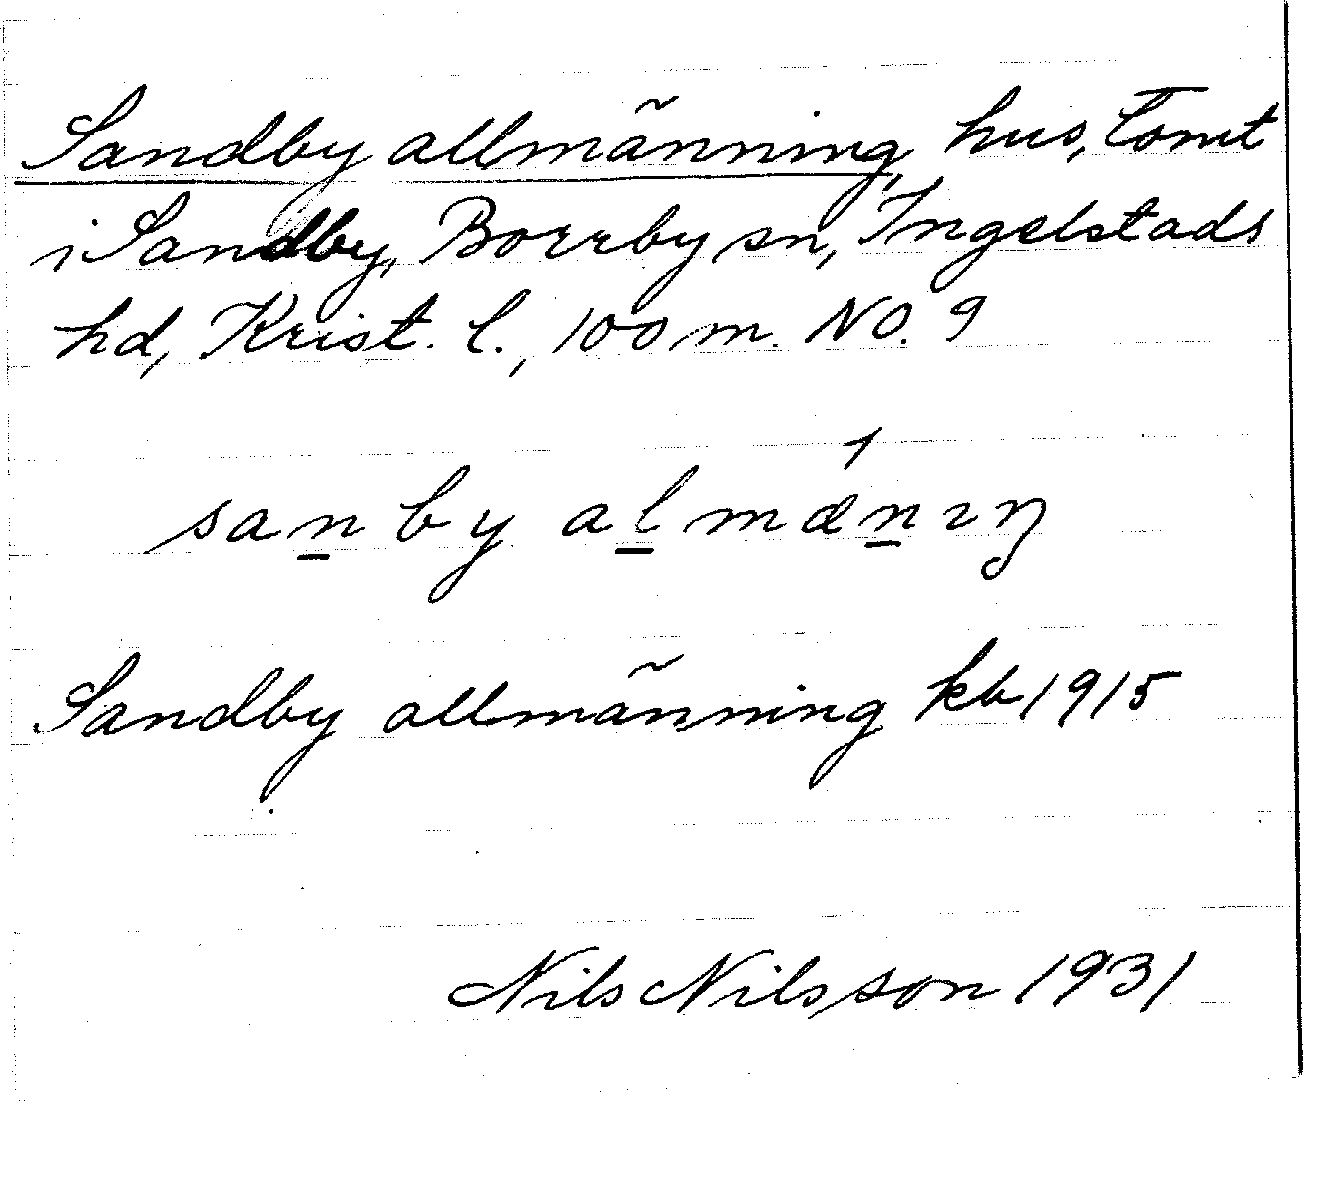 Sandby allmänning, hus, tomt
i Sandby, Borrby sn, Ingelstads
hd, Krist. l., 100 m. NO. 9
sanby almǽnıŋ
Sandby allmänning kb 1915
Nils Nilsson 1931